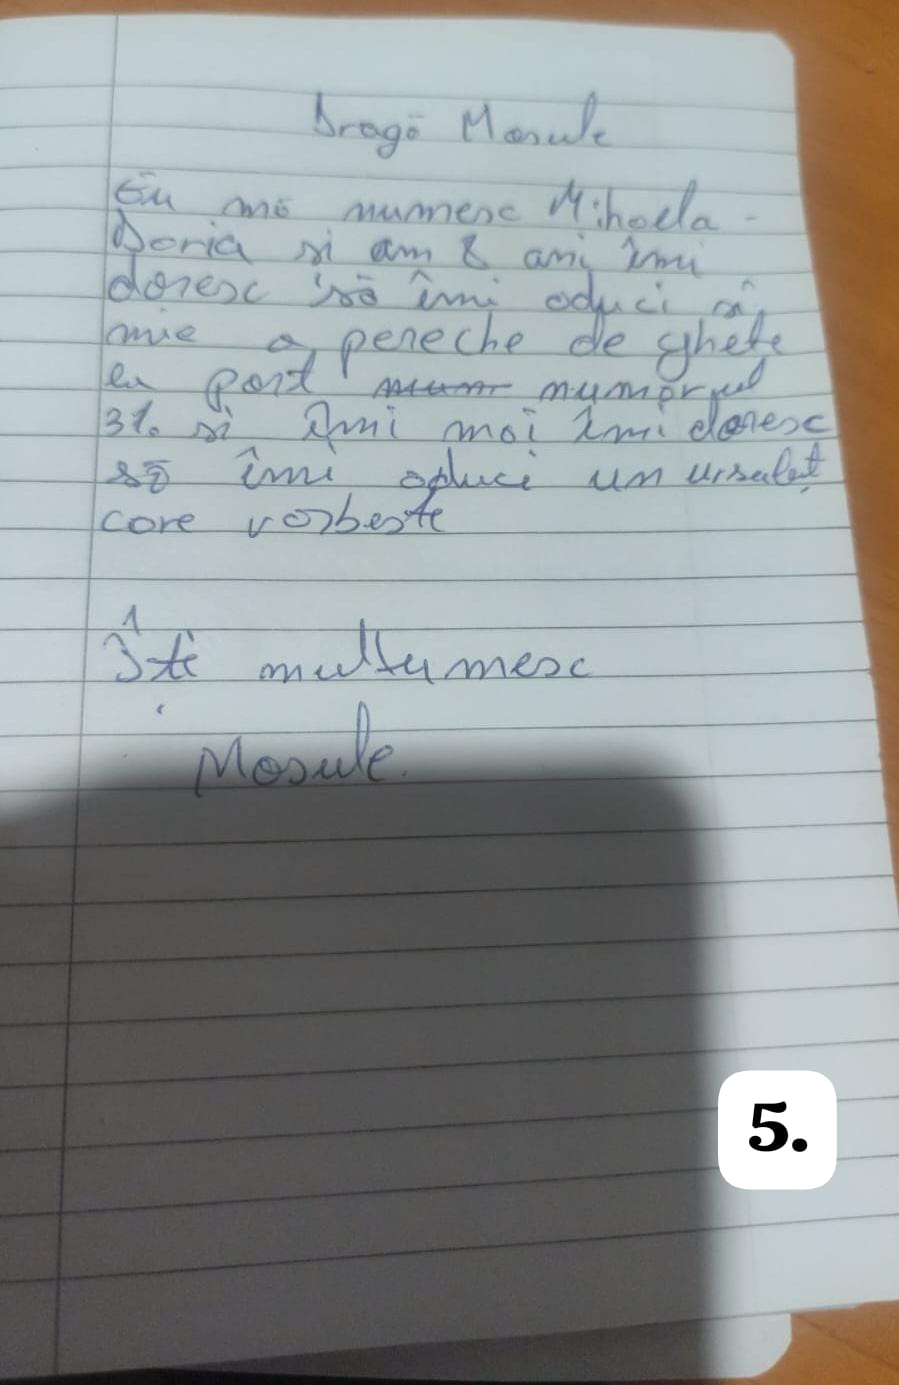 Dragă Mosule
Eu mă numesc Mihaela-
Daria si am 8 ani îmi
doresc să îmi aduci si
mie o pereche de ghete
eu port numărul
31. si îmi mai îmi doresc
să îmi aduci un ursuleț
care vorbeste
Îți multumesc
Mosule.
5.